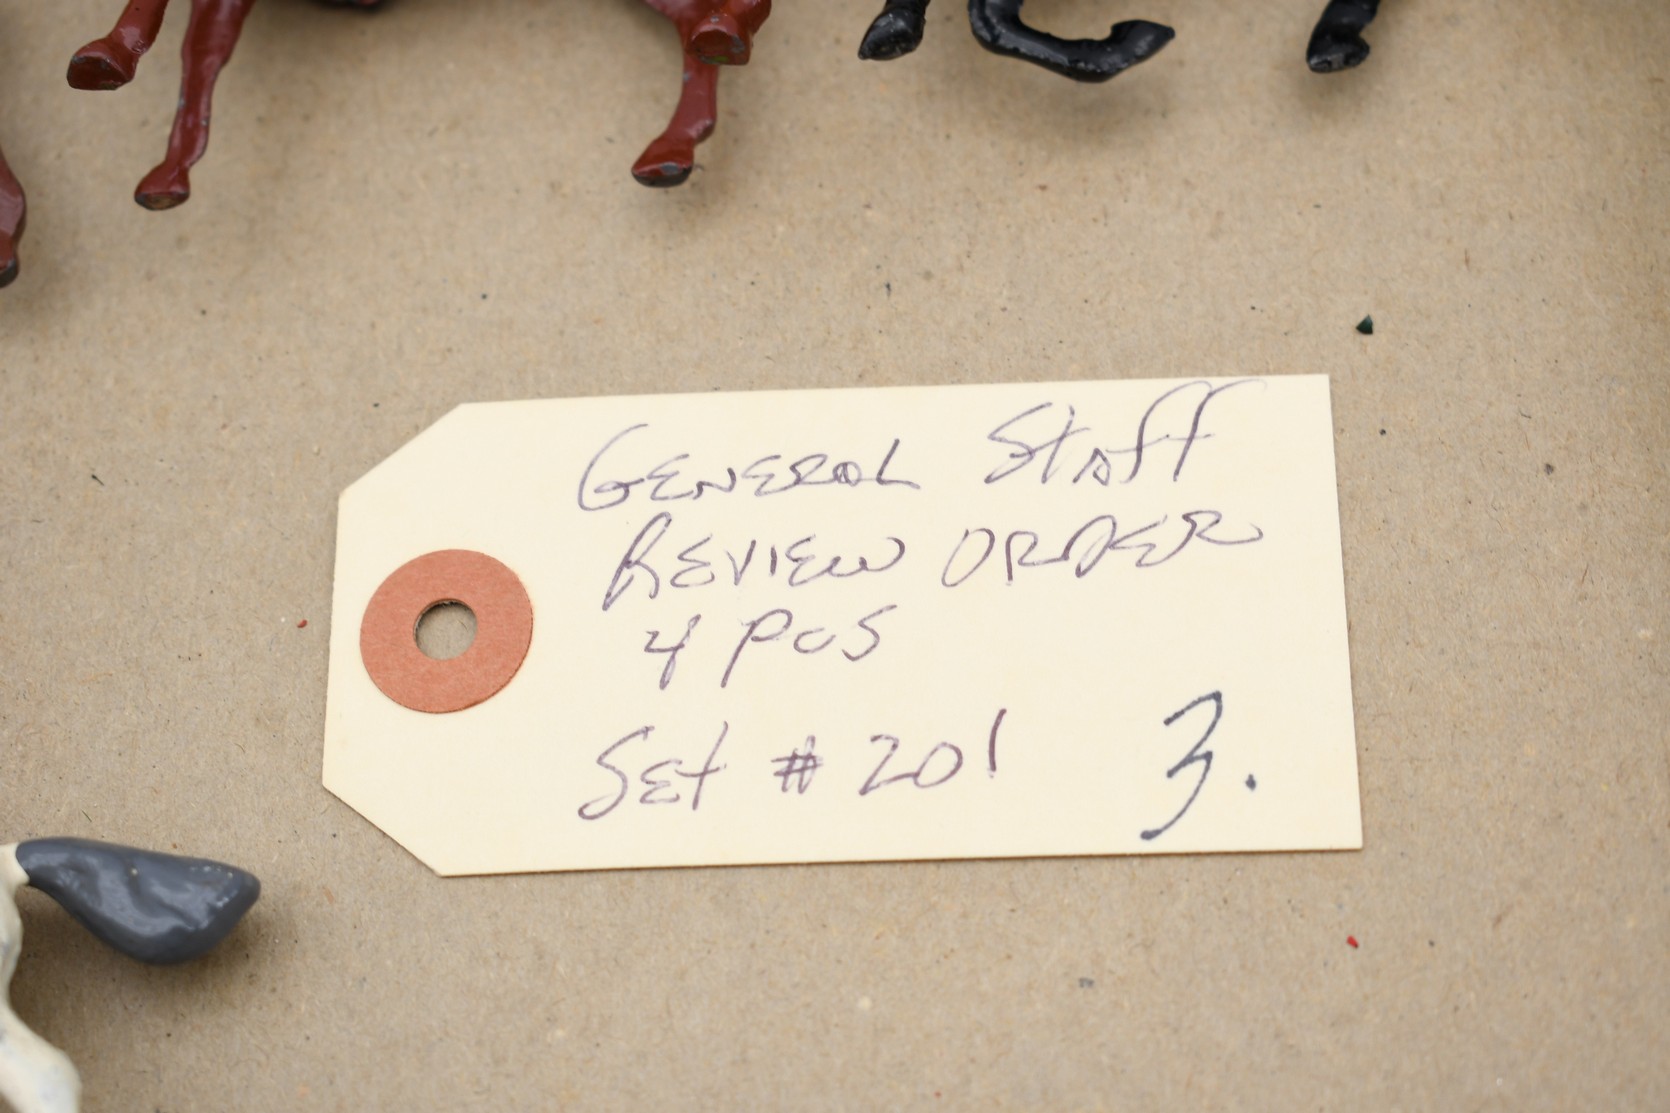 GENERAL Staff
REVIEW ORDER
4 pcs
Set # 201
3.